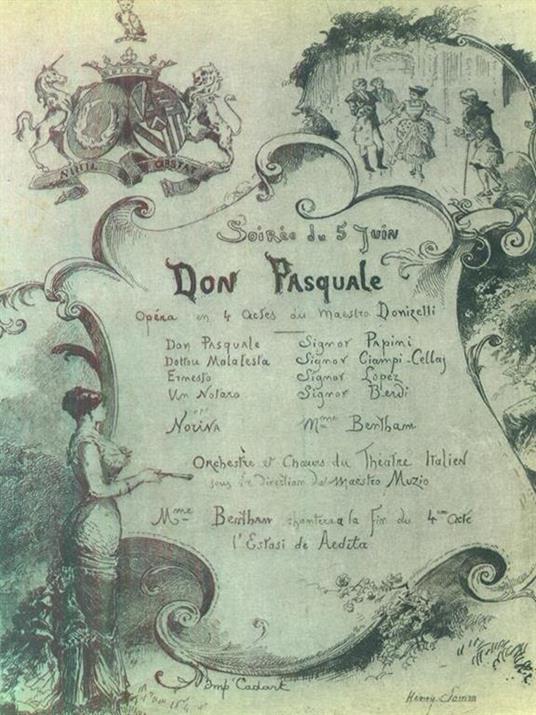 NIHIL OBSTAT
Soirée du 5 Juin
Don Pasquale
Opéra en 4 Actes du Maestro Donizetti
Don Pasquale Signor Papini
Dottou Malatesta Signor Ciampi-Cellaj
Ernesto Signor Lopez
Un Notaro Signor Berdi
Norina Mme Bentham
Orchestre et Chœurs du Théatre Italien
sous la direction du Maestro Muzio
Mme Bentham chantera a la Fin du 4me Acte
l'Estasi de Aedita
Imp Cadart
Henry Somm